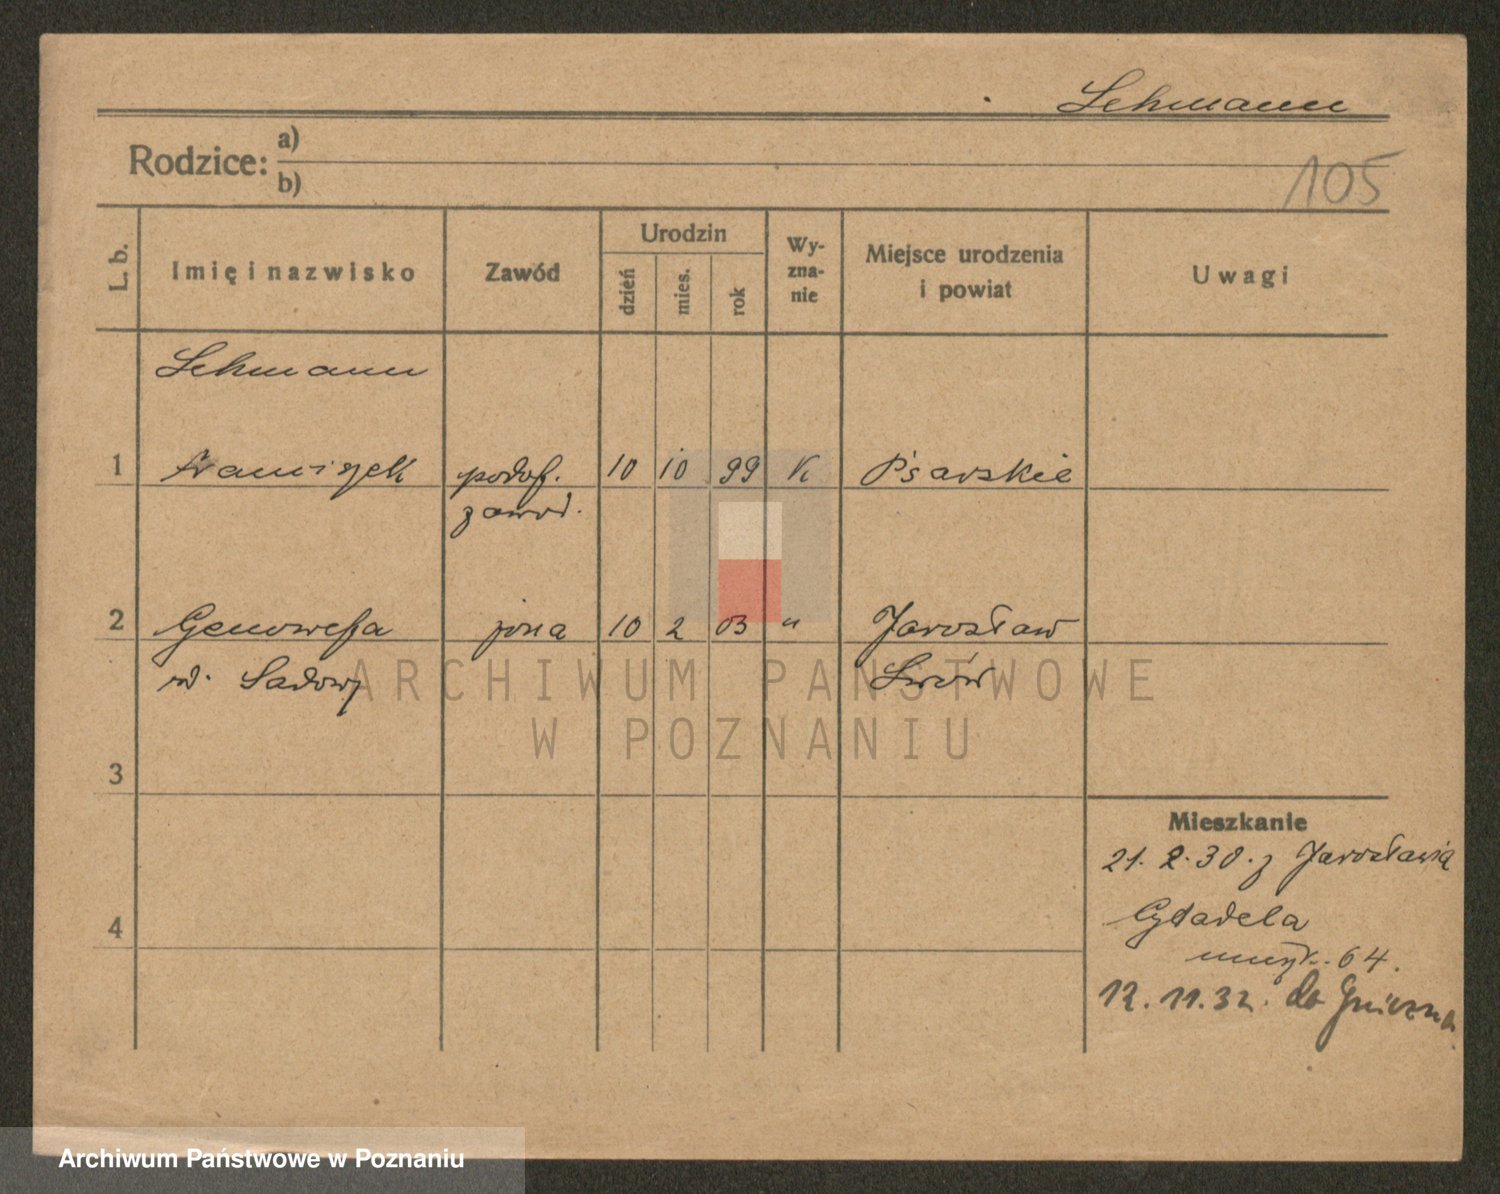 Lehmann
Rodzice: a)
b)
105
L. b.
Imię i nazwisko
Zawód
Urodzin
dzień
mies.
rok
Wy-
zna-
nie
Miejsce urodzenia
i powiat
Uwagi
Lehmann
1 Franciszek podof. 10 10 99 K Psarskie
zawod.
2 Genowefa żona 10 2 03 " Jarosław
Sadowy Lwów
ARCHIWUM PAŃSTWOWE
W POZNANIU
3
4
Mieszkanie
21.2.30. z Jarosławia
Cytadela
64.
12.11.32. do Gniezna
Archiwum Państwowe w Poznaniu